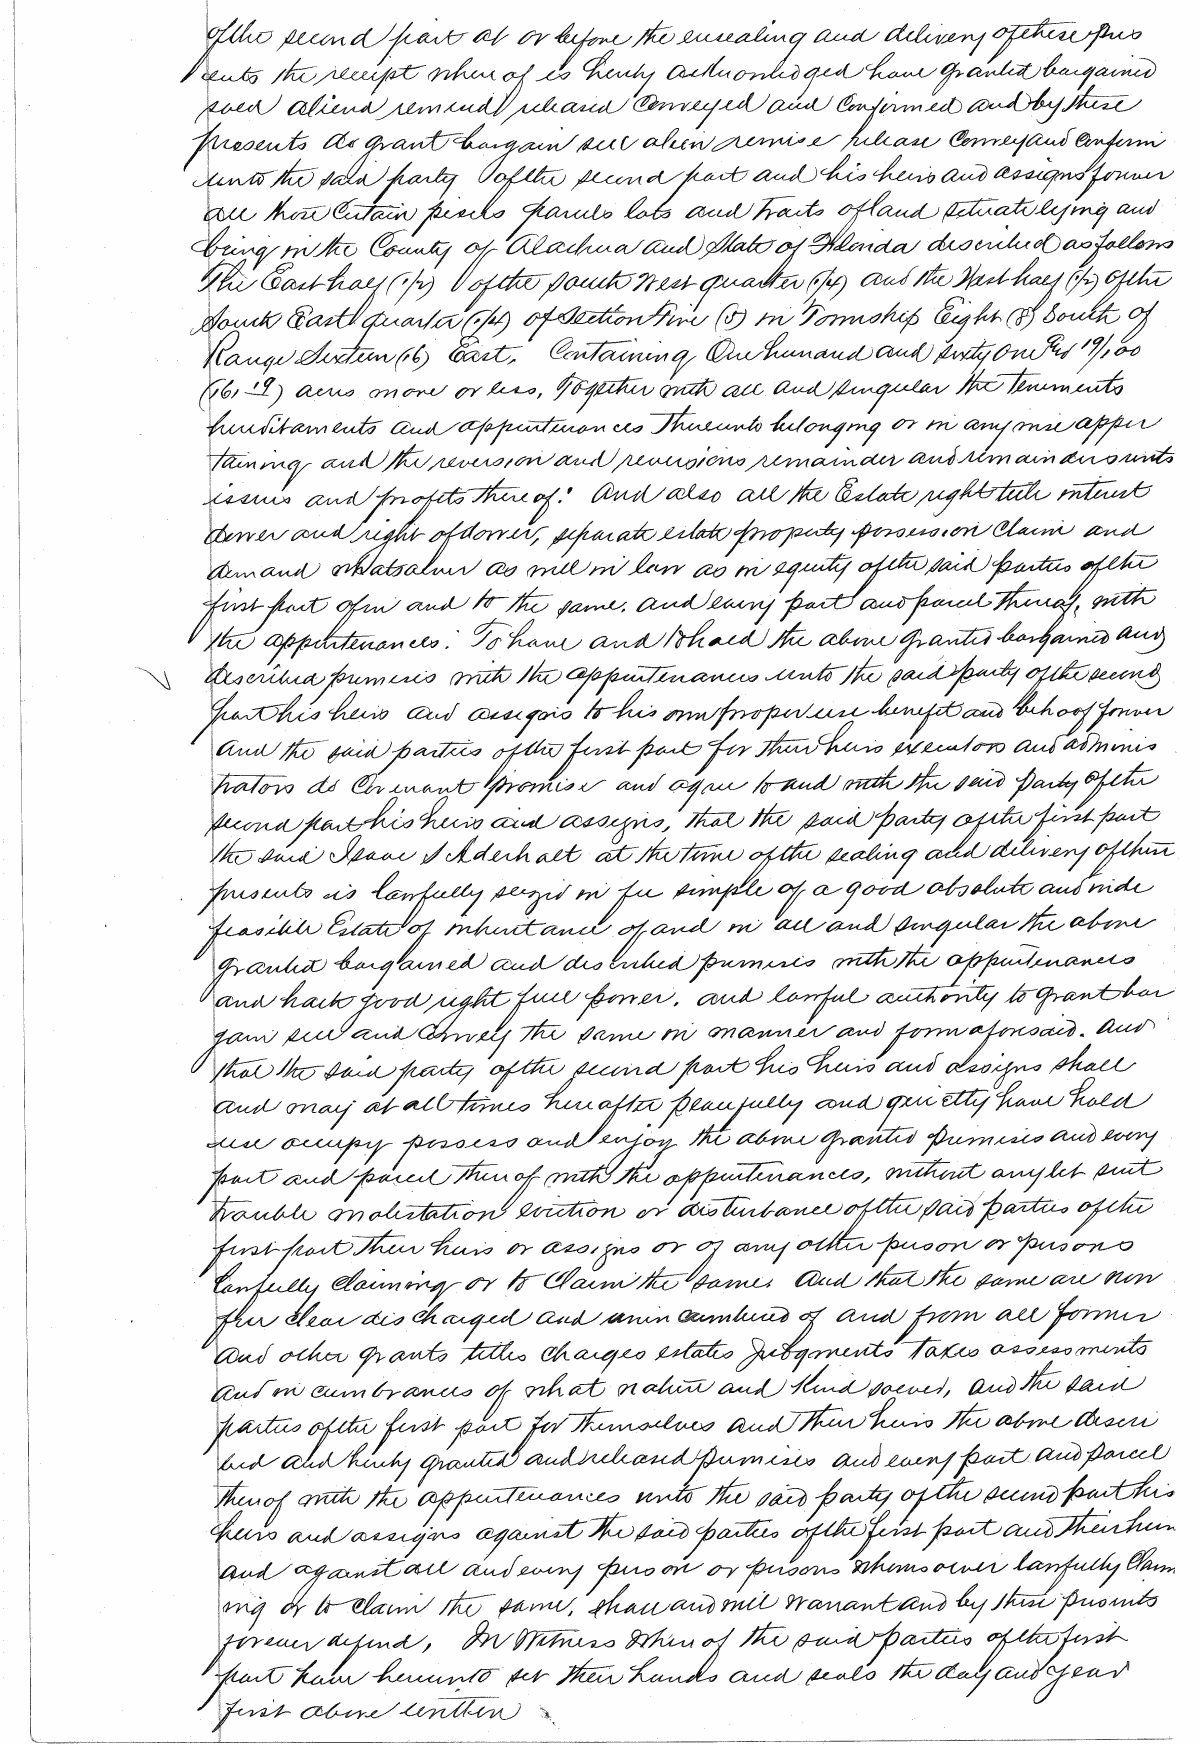 of the second part at or before the ensealing and delivery of these pres
ents the receipt whereof is hereby acknowledged have granted bargained
sold aliend remised released Conveyed and Confirmed and by these
presents do grant bargain sell alien remise release Convey and Confirm
unto the said party of the second part and his heirs and assigns forever
all those Certain pieces parcels lots and tracts of land situate lying and
being in the County of Alachua and State of Florida described as follows
The East half (1/2) of the South West quarter (1/4) and the West half (1/2) of the
South East quarter (1/4) of Section Five (5) in Township Eight (8) South of
Range Sixteen (16) East. Containing One hundred and sixty One & 19/100
(161.19) acres more or less, Together with all and singular the tenements
hereditaments and appurtenances thereunto belonging or in any wise apper
taining and the reversion and reversions remainder and remainders rents
issues and profits thereof: And also all the Estate right title interest
dower and right of dower, separate estate property possession Claim and
demand whatsoever as well in law as in equity of the said parties of the
first part of in and to the same. and every part and parcel thereof, with
the appurtenances: To have and to hold the above granted bargained and
described premises with the appurtenances unto the said party of the second
part his heirs and assigns to his own proper use benefit and behoof forever
And the said parties of the first part for their heirs executors and adminis
trators do Covenant promise and agree to and with the said party of the
second part his heirs and assigns, that the said party of the first part
the said Isaac S Aderholt at the time of the sealing and delivery of these
presents is lawfully seizid in fee simple of a good absolute and inde
feasible Estate of inheritance of and in all and singular the above
granted bargained and described premises with the appurtenances
and hath good right full power. and lawful authority to grant bar
gain sell and Convey the same in manner and form aforesaid. And
that the said party of the second part his heirs and assigns shall
and may at all times hereafter peacefully and quietly have hold
use occupy possess and enjoy the above granted premises and every
part and parcel thereof with the appurtenances, without any let suit
trouble molestation eviction or disturbance of the said parties of the
first part their heirs or assigns or of any other person or persons
lawfully Claiming or to Claim the same. And that the same are now
free clear discharged and unincumbered of and from all former
and other grants titles charges estates judgments taxes assessments
and incumbrances of what nature and Kind soever, and the said
parties of the first part for themselves and their heirs the above descri
bed and hereby granted and released premises and every part and parcel
thereof with the appurtenances unto the said party of the second part his
heirs and assigns against the said parties of the first part and their heirs
and against all and every person or persons whomsoever lawfully Claim
ing or to claim the same, shall and will warrant and by these presents
forever defend, In Witness Whereof the said parties of the first
part have hereunto set their hands and seals the day and year
first above written